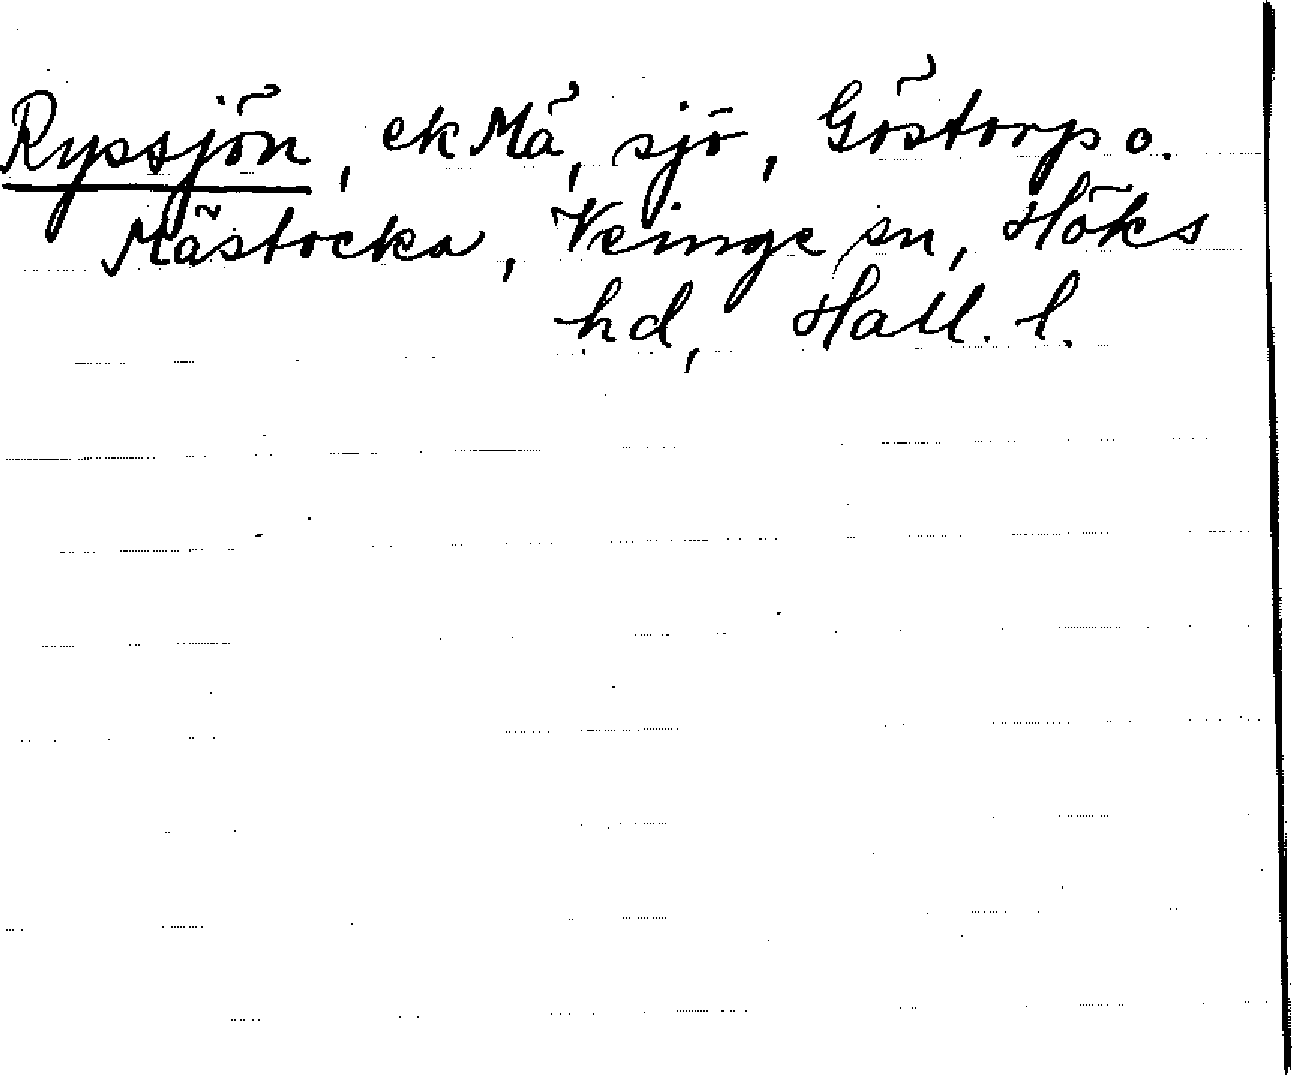 Rypsjön, ek Mä, sjö, Göstorp o.
Mästocka, Veinge sn, Höks
hd, Hall. l.